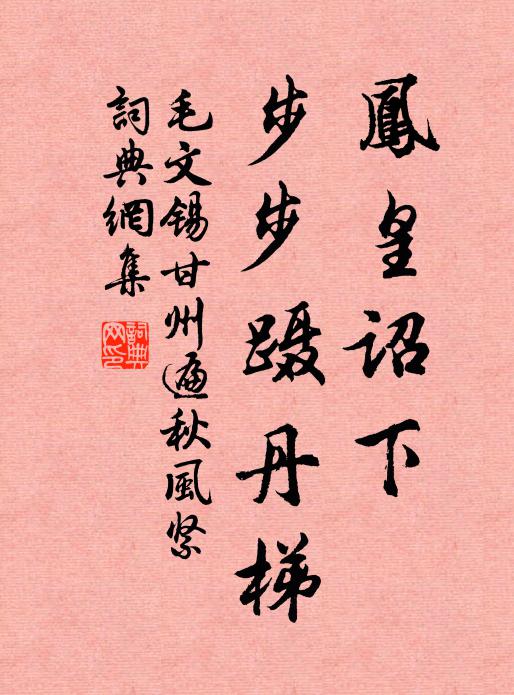 鳳皇詔下
步步蹑丹梯
毛文錫甘州遍秋風紧
詞典網集
詞典网印